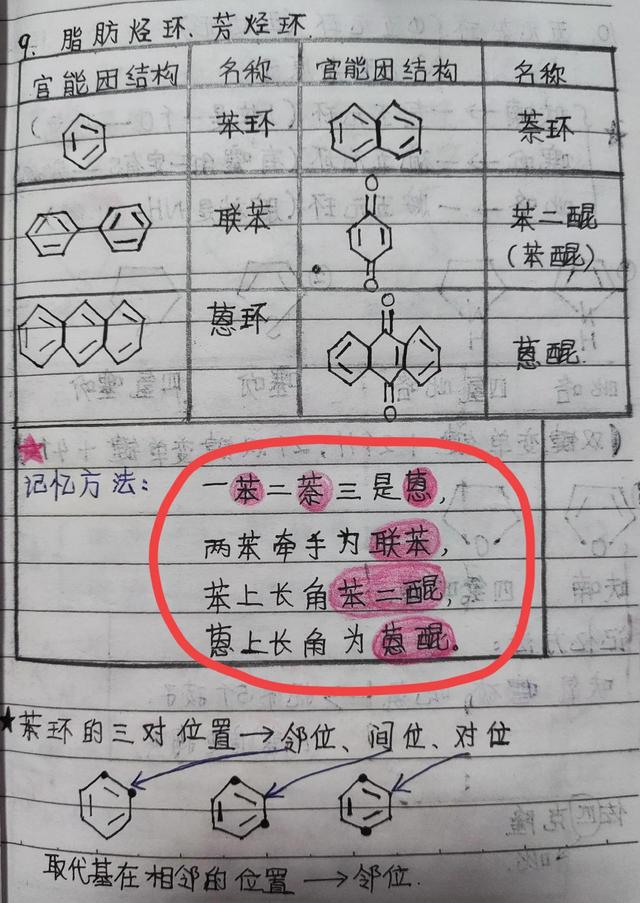 9. 脂肪烃环、芳烃环
官能团结构 名称 官能团结构 名称
苯环 萘环
联苯 苯二醌
(苯醌)
蒽环 蒽醌
O
O
O
O
记忆方法:
一苯二萘三是蒽,
两苯牵手为联苯,
苯上长角苯二醌,
蒽上长角为蒽醌。
★苯环的三对位置→邻位、间位、对位
取代基在相邻的位置→邻位.